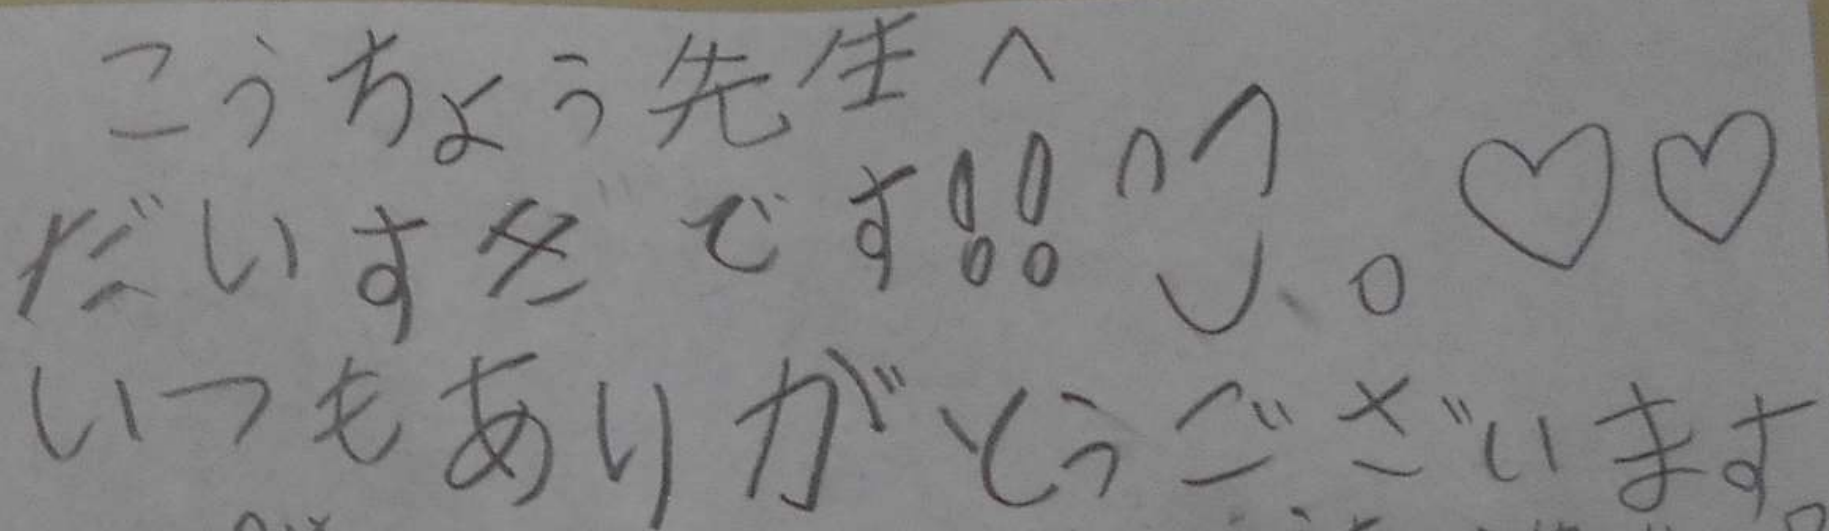 こうちょう先生へ
だいすきです!!。♡♡
いつもありがとうございます。